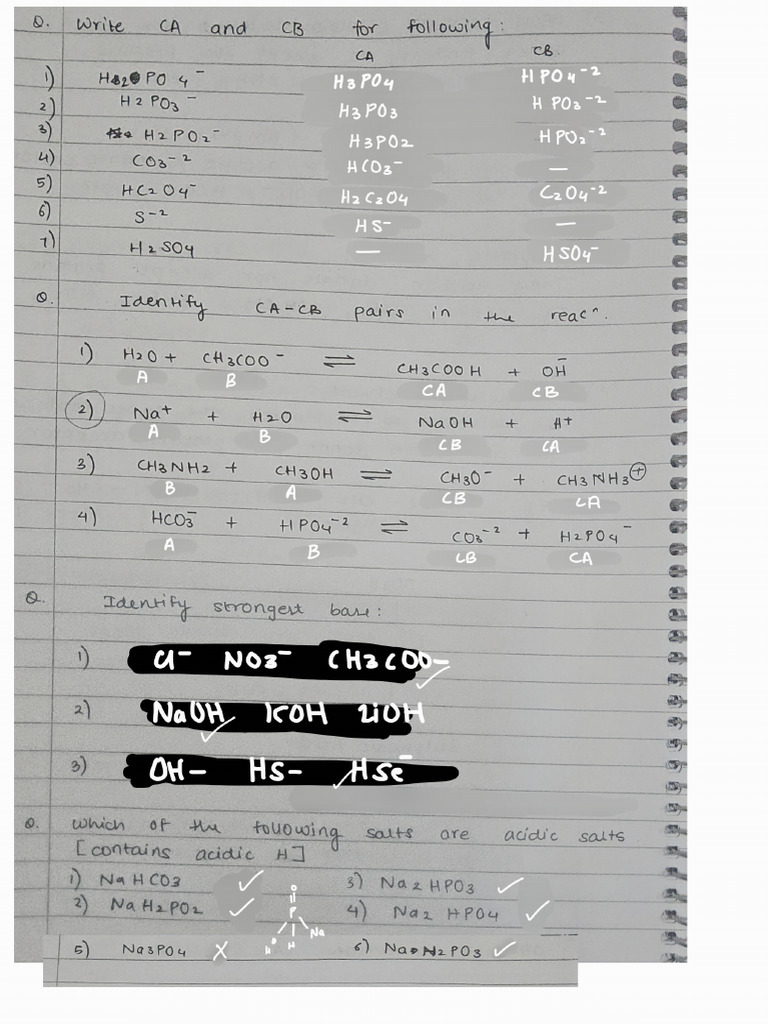 Q. Write CA and CB for following:
CA CB
1) H2PO4⁻ H3PO4 HPO4⁻²
2) H2PO3⁻ H3PO3 HPO3⁻²
3) H2PO2⁻ H3PO2 HPO2⁻²
4) CO3⁻² HCO3⁻ —
5) HC2O4⁻ H2C2O4 C2O4⁻²
6) S⁻² HS⁻ —
7) H2SO4 — HSO4⁻
Q. Identify CA-CB pairs in the reacⁿ.
1) H2O + CH3COO⁻ ⇌ CH3COOH + OH⁻
A B CA CB
2) Na⁺ + H2O ⇌ NaOH + H⁺
A B CB CA
3) CH3NH2 + CH3OH ⇌ CH3O⁻ + CH3NH3⊕
B A CB CA
4) HCO3⁻ + HPO4⁻² ⇌ CO3⁻² + H2PO4⁻
A B CB CA
Q. Identify strongest base:
1) Cl⁻ NO3⁻ CH3COO- ✓
2) NaOH ✓ KOH LiOH
3) OH- HS- ✓ HSe⁻
Q. Which of the following salts are acidic salts
[contains acidic H]
1) NaHCO3 ✓ 3) Na2HPO3 ✓
2) NaH2PO2 ✓ 4) Na2HPO4 ✓
O
P
Na
H
5) Na3PO4 X 6) NaH2PO3 ✓